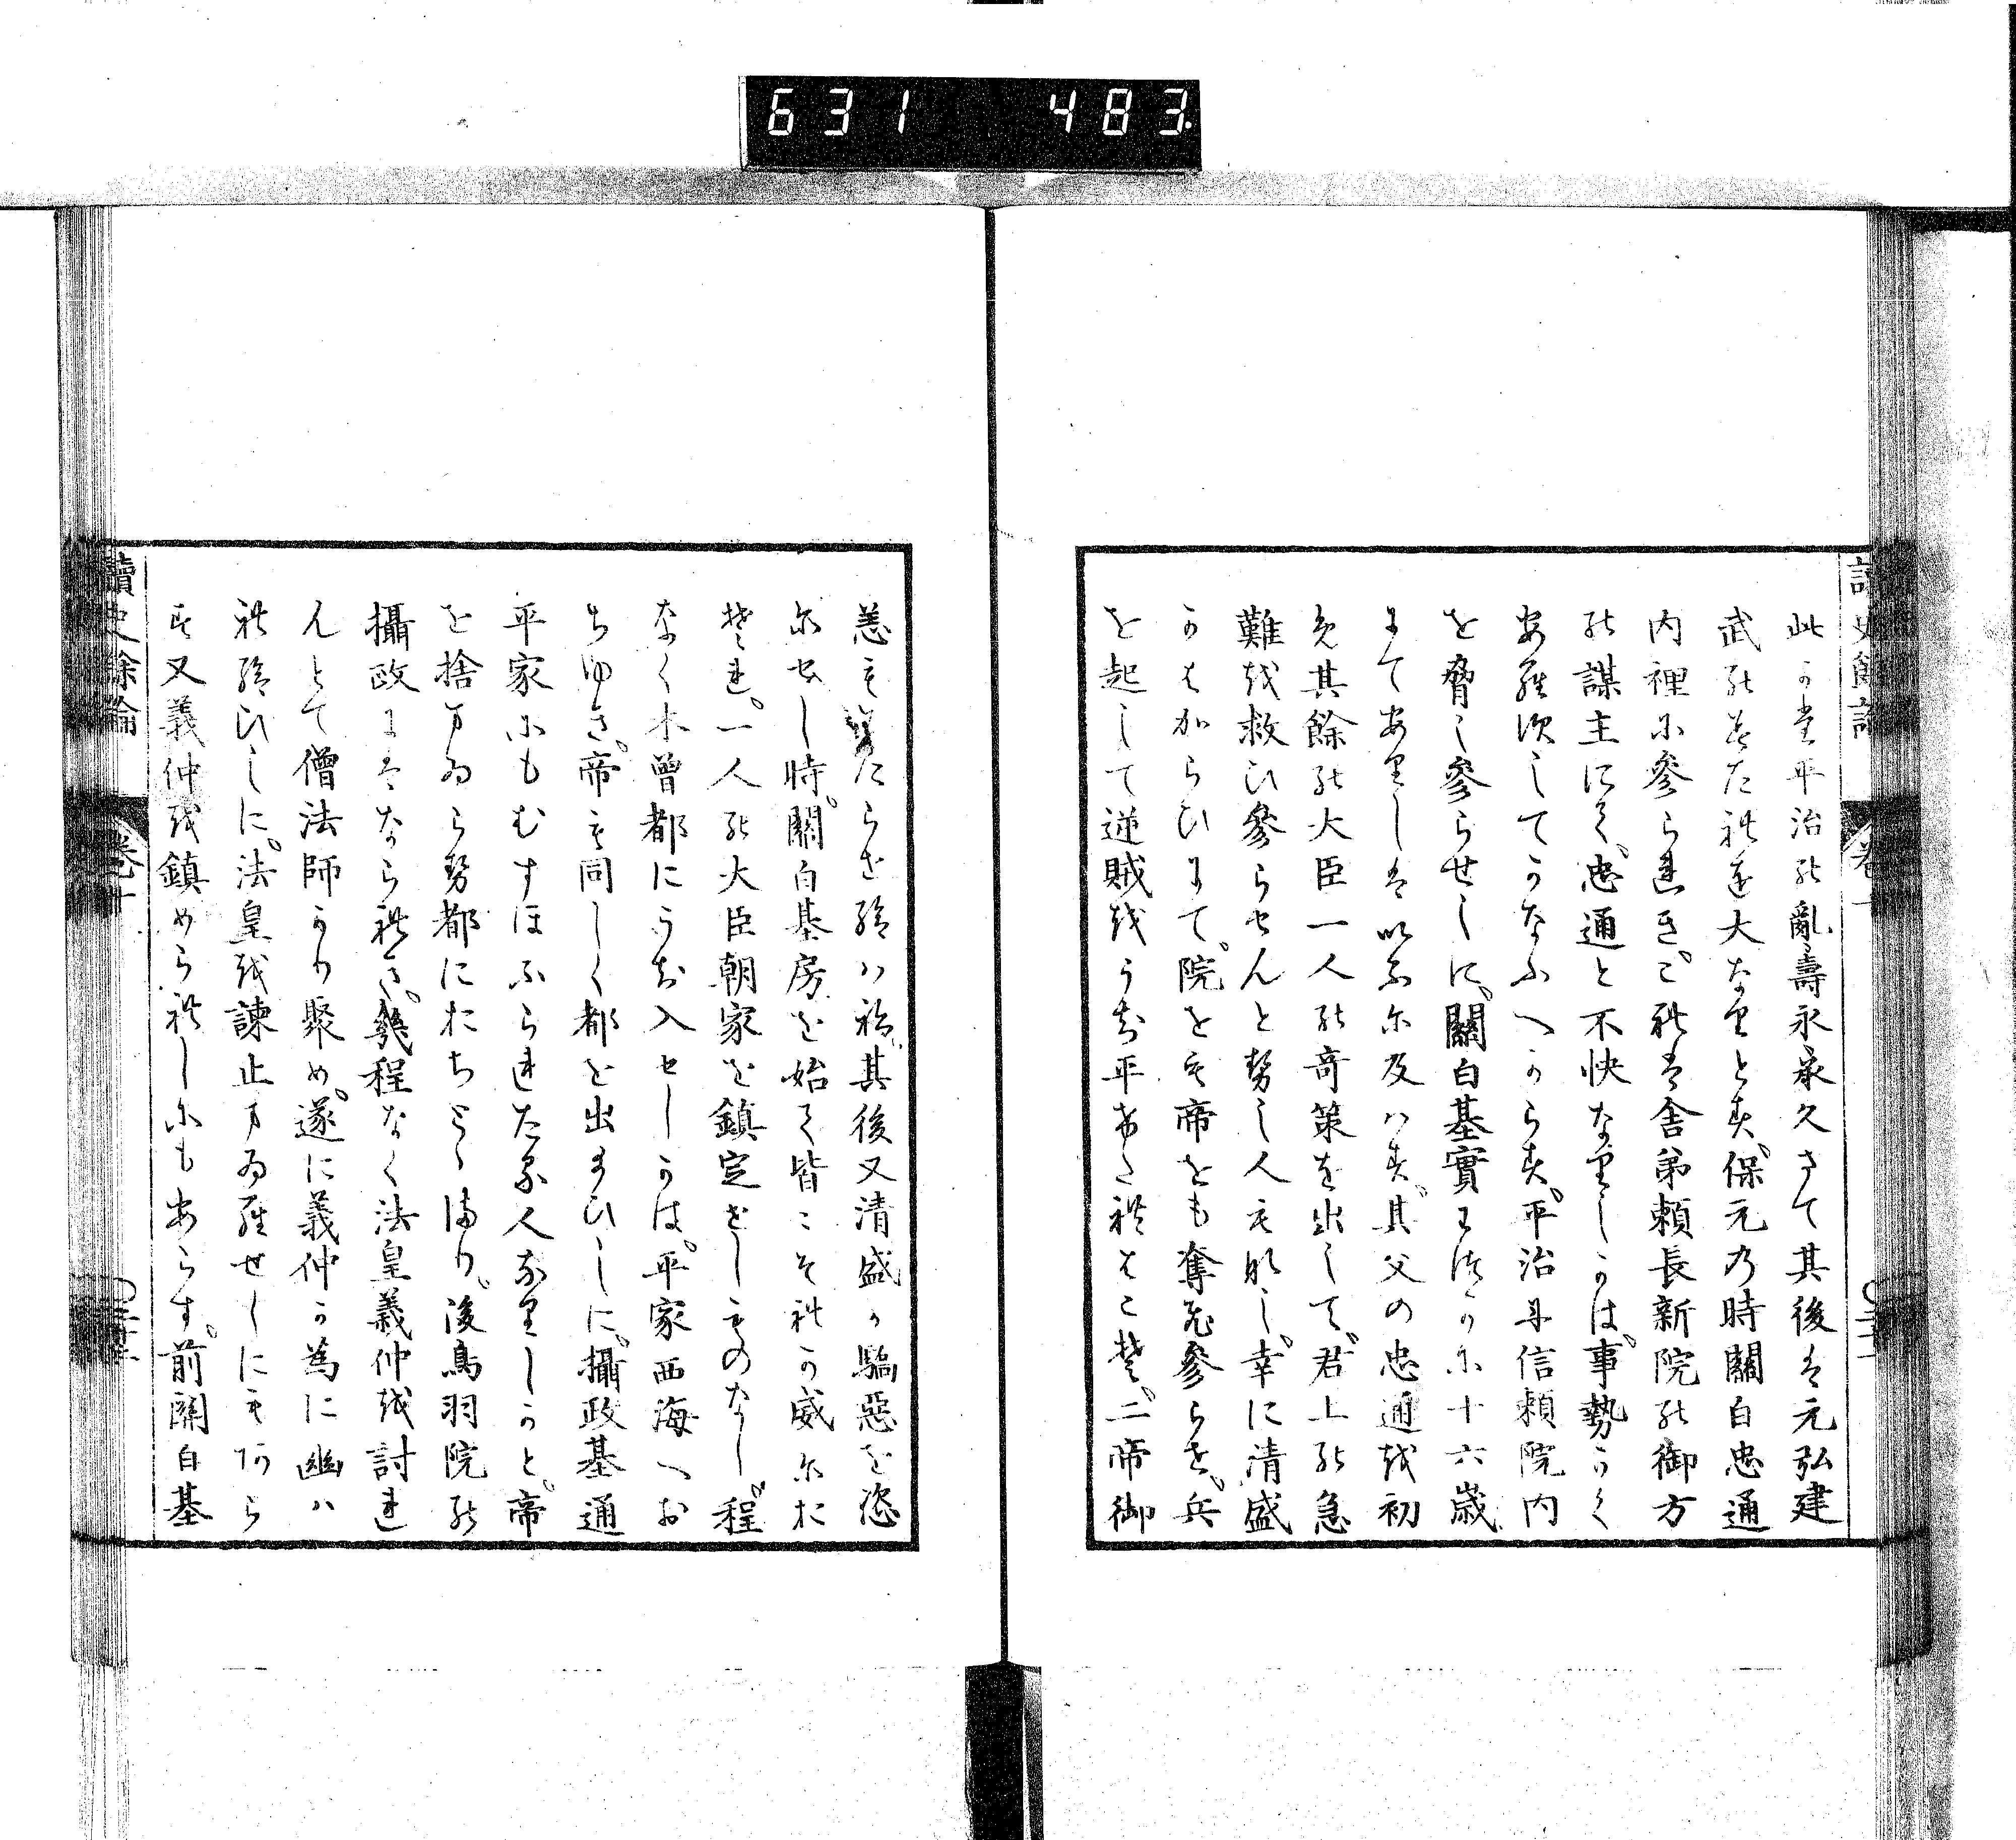 631 483
讀史餘論 卷一
此かた平治の亂壽永承久さて其後は元弘建
武のみたれを大なりとす。保元の時關白忠通
内裡に參られき。これは舎弟頼長新院の御方
の謀主にて、忠通と不快なりしかは、事勢かく
あるへくしてかなふへからす。平治に信頼院内
を脅し參らせしに、關白基實わつかに十六歳
にてありしは以ふに及ハす。其父の忠通を初
め其餘の大臣一人の奇策を出して、君上の急
難を救ひ參らせんと努し人も那し。幸に清盛
かはからひにて。院をも帝をも奪ひ參らせ、兵
を起して逆賊をうち平けたれはこそ、二帝御
恙もわたらせ給ハね。其後又清盛か驕惡を恣
にせし時。關白基房を始て皆こそれか威にお
それ。一人の大臣朝家を鎮定せしものなし。程
なく木曾都にうち入せしかは。平家西海へお
ちゆき。帝も同しく都を出給ひしに。攝政基通
平家にもむすほふられたる人なりしかと。帝
を捨まゐらせ都におちとゝまり。後鳥羽院の
攝政にはなられき。幾程なく法皇義仲を討れ
んとて僧法師かり聚め。遂に義仲か為に幽ハ
れ給ひしに。法皇を諫止まゐらせしにもあら
す又義仲を鎮められしにもあらす。前關白基
讀史餘論 卷一